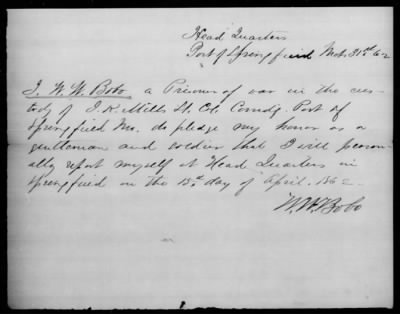 Head Quarters
Post of Springfield Mch. 31st 62
I. W. W. Bobo a Prisoner of war in the cus-
tody of J. K. Mills Lt. Col. Comdg. Post of
Springfield Mo. do pledge my honor as a
gentleman and soldier that I will person-
ally report myself at Head Quarters in
Springfield on the 15th day of April. 1862
W. W. Bobo